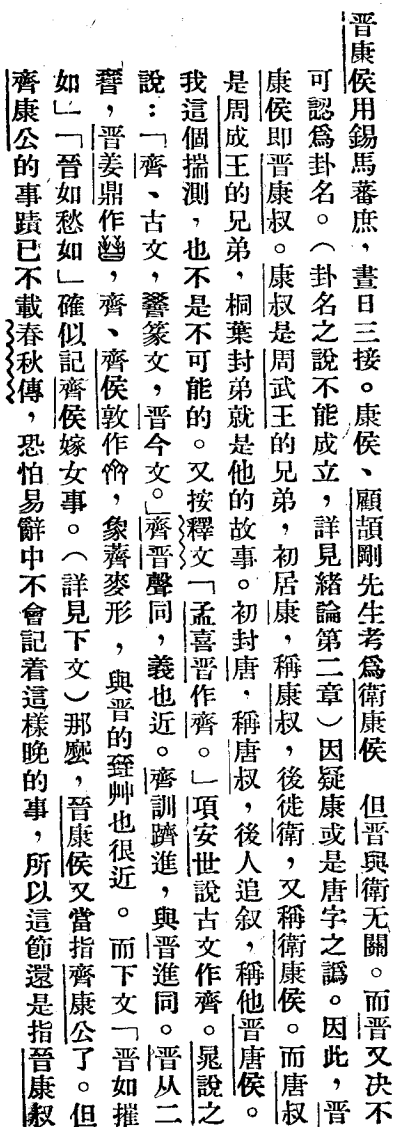 晉康侯用錫馬蕃庶，晝日三接。康侯、顧頡剛先生考爲衞康侯　但晉與衞无關。而晉又決不
可認爲卦名。（卦名之說不能成立，詳見緒論第二章）因疑康或是唐字之譌。因此，晉
康侯卽晉康叔。康叔是周武王的兄弟，初居康，稱康叔，後徙衞，又稱衞康侯。而唐叔
是周成王的兄弟，桐葉封弟就是他的故事。初封唐，稱唐叔，後人追叙，稱他晉唐侯。
我這個揣測，也不是不可能的。又按釋文「孟喜晉作齊。」項安世說古文作齊。晁說之
說：「齊、古文，篆文，晉今文。」齊晉聲同，義也近。齊訓躋進，與晉進同。晉从二
，晉姜鼎作，齊、齊侯敦作，象薺麥形，與晉的艸也很近。而下文「晉如摧
如」「晉如愁如」確似記齊侯嫁女事。（詳見下文）那麼，晉康侯又當指齊康公了。但
齊康公的事蹟已不載春秋傳，恐怕易辭中不會記着這樣晚的事，所以這節還是指晉康叔